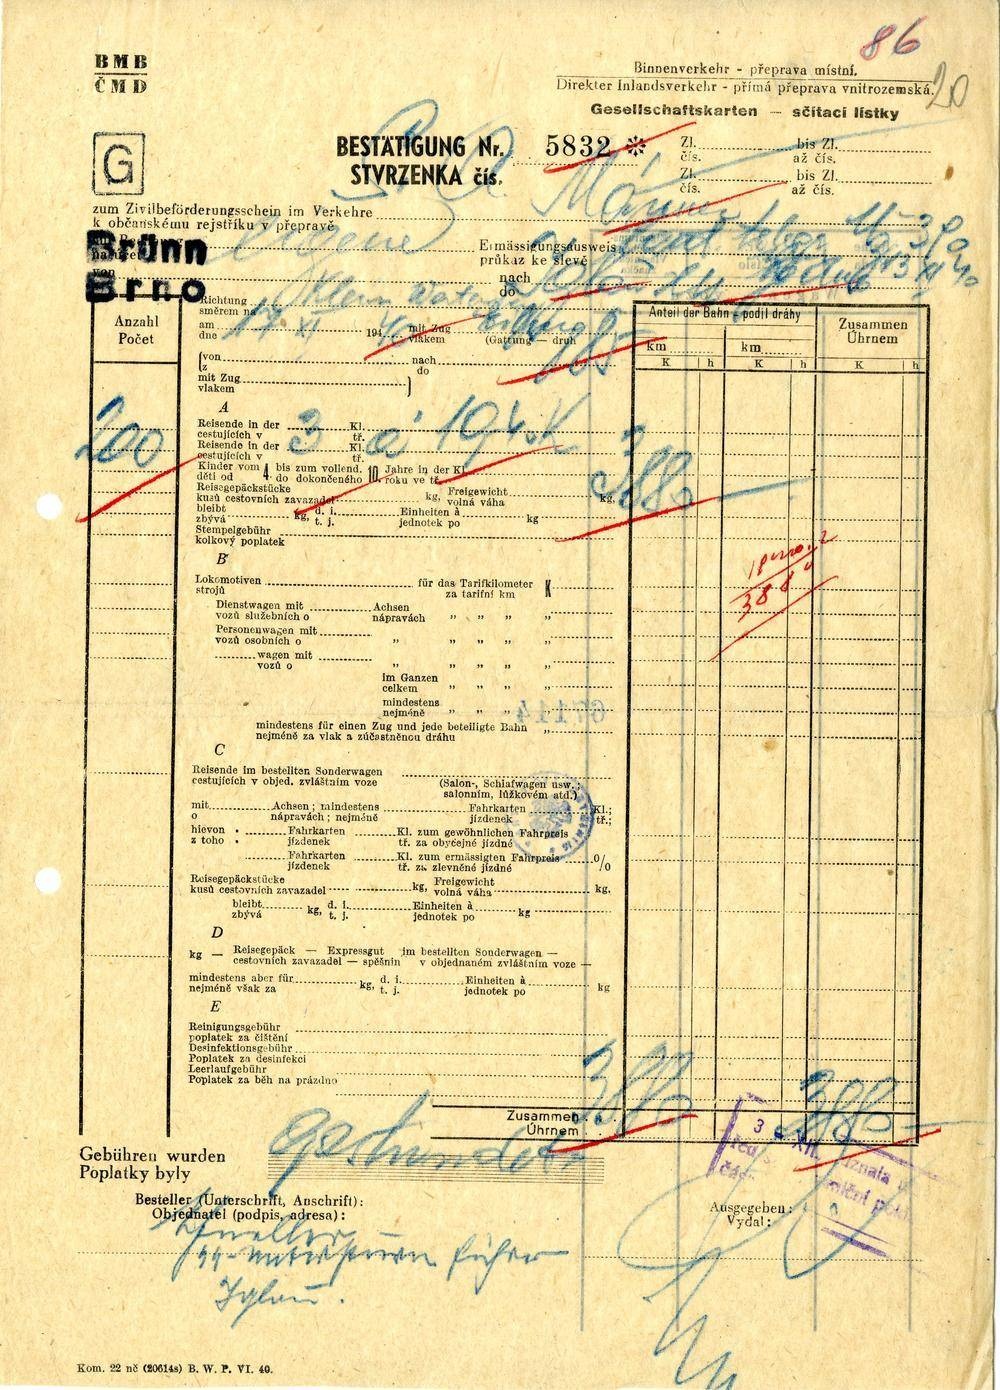 86
20
BMB
ČMD
Binnenverkehr - přeprava místní.
Direkter Inlandsverkehr - přímá přeprava vnitrozemská.
Gesellschaftskarten — sčítací lístky
G
BESTÄTIGUNG Nr. 5832 *
STVRZENKA čís.
Zl. bis Zl.
čís. až čís.
Zl. bis Zl.
čís. až čís.
zum Zivilbeförderungsschein im Verkehre
k občanskému rejstříku v přepravě
Brünn
Brno
von
Ermässigungsausweis
průkaz ke slevě
nach
do
Richtung
směrem na
am
dne 194 mit Zug
vlakem (Gattung — druh
von nach
z do
mit Zug
vlakem
Anzahl
Počet
Anteil der Bahn - podíl dráhy
Zusammen
Úhrnem
km km
K h K h K h
A
200
Reisende in der 3 Kl. à 19.40 K
cestujících v tř.
Reisende in der Kl.
cestujících v tř.
3880
Kinder vom 4 bis zum vollend. 10 Jahre in der Kl.
děti od 4 do dokončeného 10 roku ve tř.
Reisegepäckstücke kg, Freigewicht kg,
kusů cestovních zavazadel volná váha
bleibt kg, d. i. Einheiten à kg
zbývá t. j. jednotek po
Stempelgebühr
kolkový poplatek
3880
B
Lokomotiven für das Tarifkilometer K
strojů za tarifní km
Dienstwagen mit Achsen
vozů služebních o nápravách „ „ „ „
Personenwagen mit
vozů osobních o „ „ „ „ „
wagen mit
vozů o „ „ „ „ „
im Ganzen
celkem „ „ „ „
mindestens
nejméně „ „ „ „
67114
mindestens für einen Zug und jede beteiligte Bahn „
nejméně za vlak a zúčastněnou dráhu
C
Reisende im bestellten Sonderwagen
cestujících v objed. zvláštním voze (Salon-, Schlafwagen usw.;
salonním, lůžkovém atd.)
mit Achsen; mindestens Fahrkarten Kl.;
o nápravách; nejméně jízdenek tř.;
hievon • Fahrkarten Kl. zum gewöhnlichen Fahrpreis
z toho • jízdenek tř. za obyčejné jízdné
Fahrkarten Kl. zum ermässigten Fahrpreis %
jízdenek tř. za zlevněné jízdné
Reisegepäckstücke kg, Freigewicht kg,
kusů cestovních zavazadel volná váha
bleibt kg, d. i. Einheiten à kg
zbývá t. j. jednotek po
D
kg — Reisegepäck — Expressgut im bestellten Sonderwagen —
cestovních zavazadel — spěšnin v objednaném zvláštním voze —
mindestens aber für kg, d. i. Einheiten à kg
nejméně však za t. j. jednotek po
E
Reinigungsgebühr
poplatek za čištění
Desinfektionsgebühr
Poplatek za desinfekci
Leerlaufgebühr
Poplatek za běh na prázdno
Zusammen
Úhrnem 3880 3880
Gebühren wurden gestundet
Poplatky byly
Besteller (Unterschrift, Anschrift):
Objednatel (podpis, adresa):
Ausgegeben:
Vydal:
Iglau.
Kom. 22 nč (20614s) B. W. P. VI. 40.